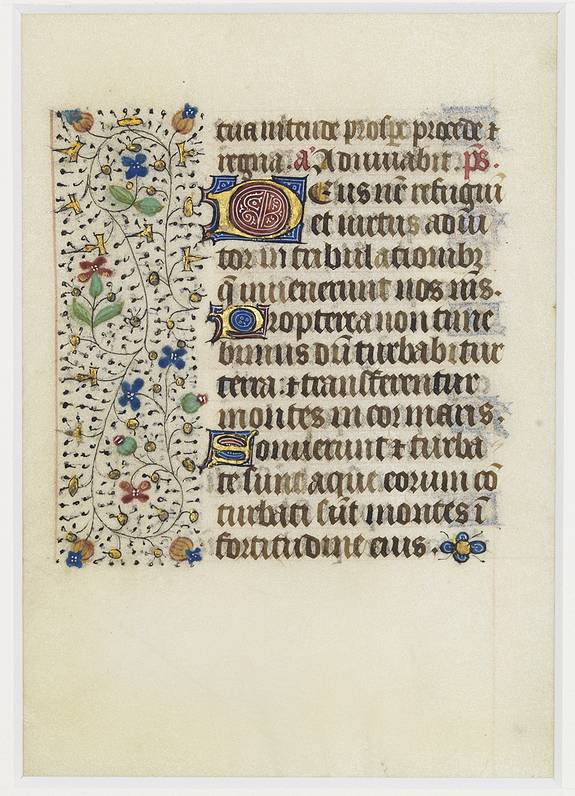 tua intende prospe procede ⁊
regna. a᷉ Adiuuabit. p̄s.
Deus nr̄ refugiū
et uirtus adiu
tor in tribulationibꝫ
q̄ inuenerunt nos nis.
Propterea non time
bimus dū turbabitur
terra ⁊ transferentur
montes in cor maris.
Sonuerunt ⁊ turba
te sunt aque eorum cō
turbati sūt montes ī
fortitudine eius.